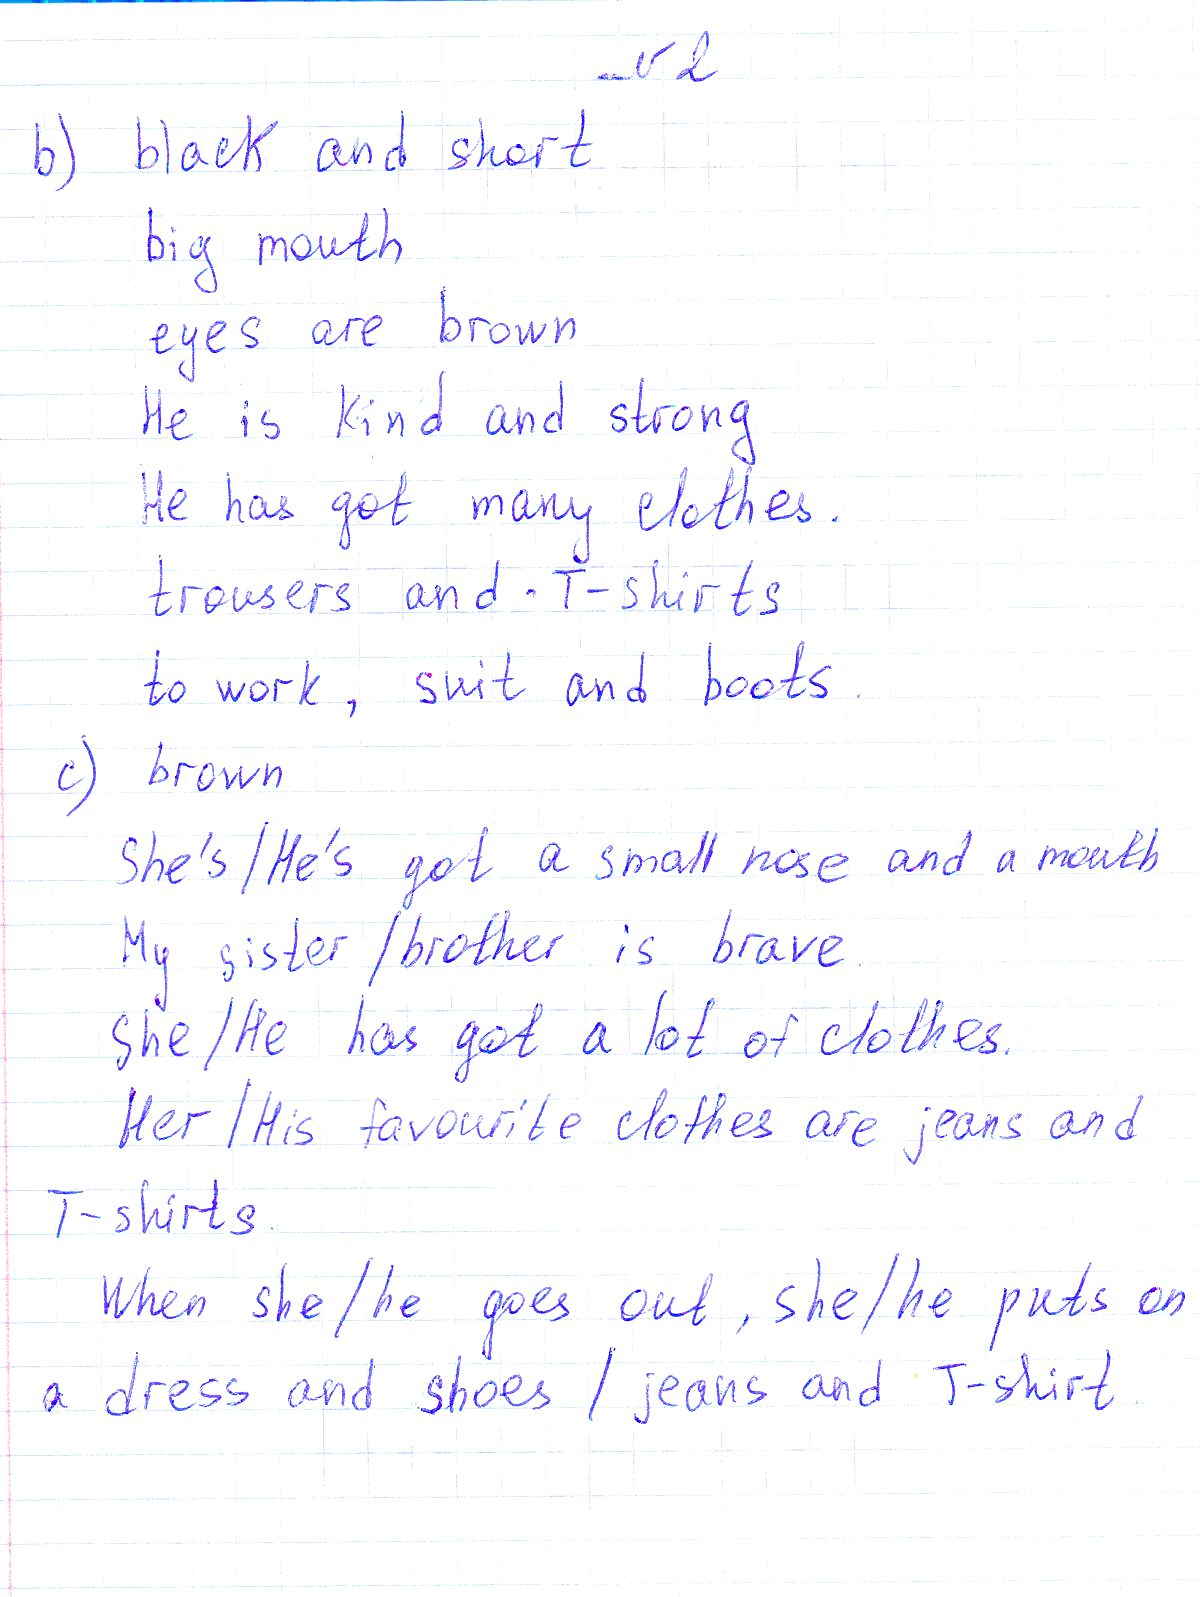 № 2
b) black and short
big mouth
eyes are brown
He is kind and strong
He has got many clothes.
trousers and T-shirts
to work, suit and boots.
c) brown
She's/He's got a small nose and a mouth
My sister/brother is brave.
She/He has got a lot of clothes.
Her/His favourite clothes are jeans and
T-shirts.
When she/he goes out, she/he puts on
a dress and shoes / jeans and T-shirt.